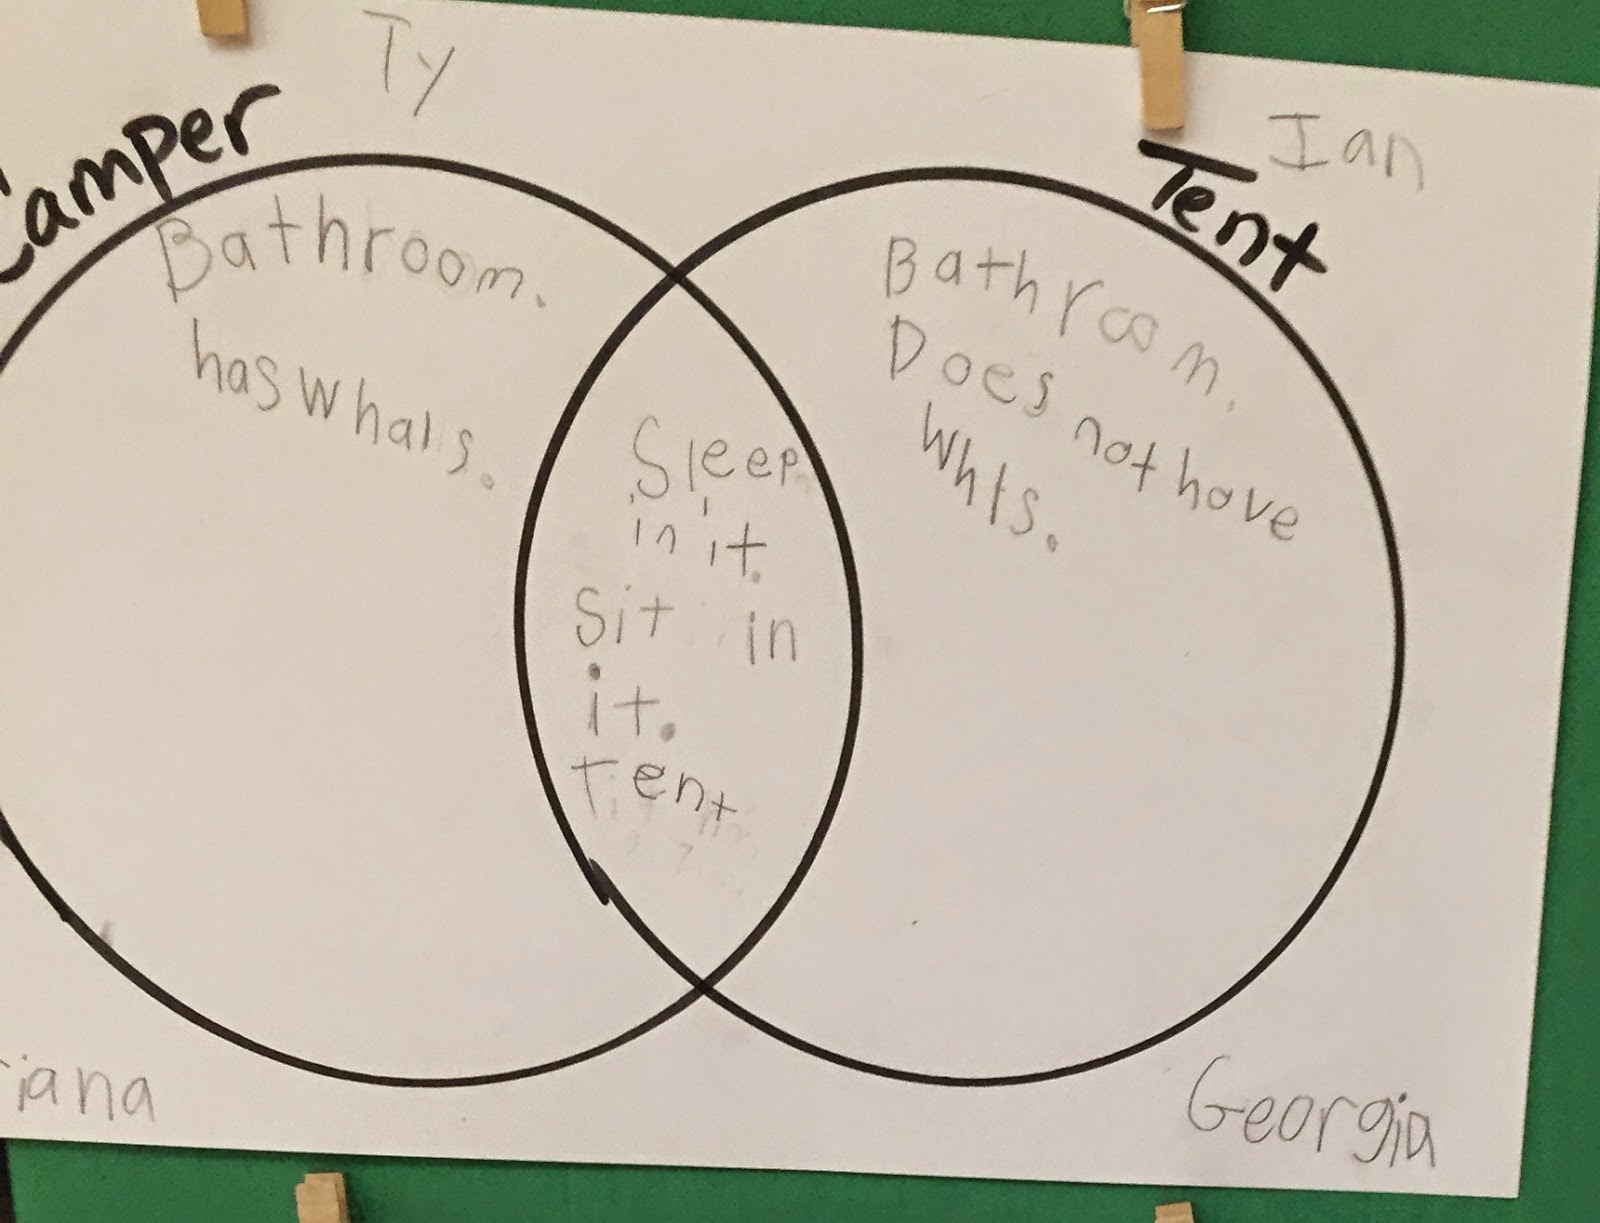 Ty
Ian
Camper
Tent
Bathroom.
has whals.
Sleep
in it.
Sit in
it.
Tent
Bathroom.
Does not have
Whls.
iana
Georgia